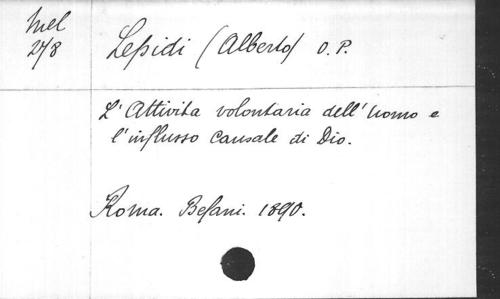 Mel
278
Lepidi (Alberto) O. P.
L'Attivita volontaria dell'uomo e
l'influsso causale di Dio.
Roma. Befani. 1890.